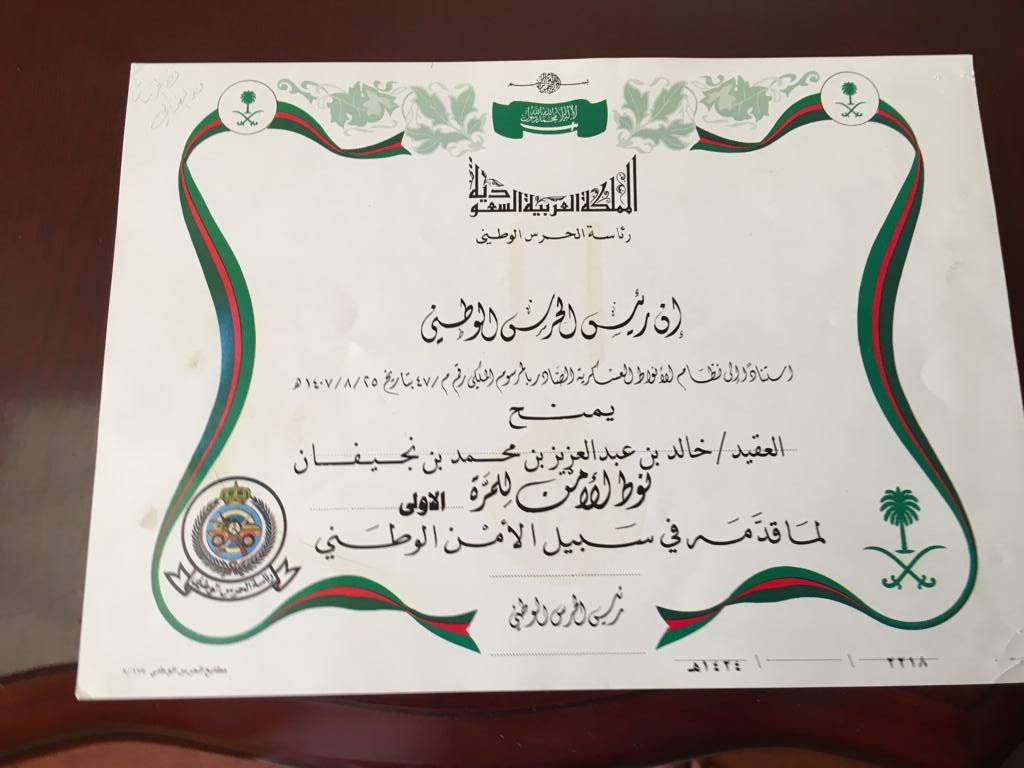 بسم الله الرحمن الرحيم
لا إله إلا الله محمد رسول الله
المملكة العربية السعودية
رئاسة الحرس الوطني
إن رئيس الحرس الوطني
استناداً إلى نظام الأنواط العسكرية الصادر بالمرسوم الملكي رقم م/٤٧ بتاريخ ١٤٠٧/٨/٢٥هـ
يمنح
العقيد/خالد بن عبدالعزيز بن محمد بن نجيفان
نوط الأمن للمرة الاولى
لما قدمه في سبيل الأمن الوطني
رئيس الحرس الوطني
رئاسة الحرس الوطني
٢٢١٨ / / ١٤٢٤هـ
مطابع الحرس الوطني